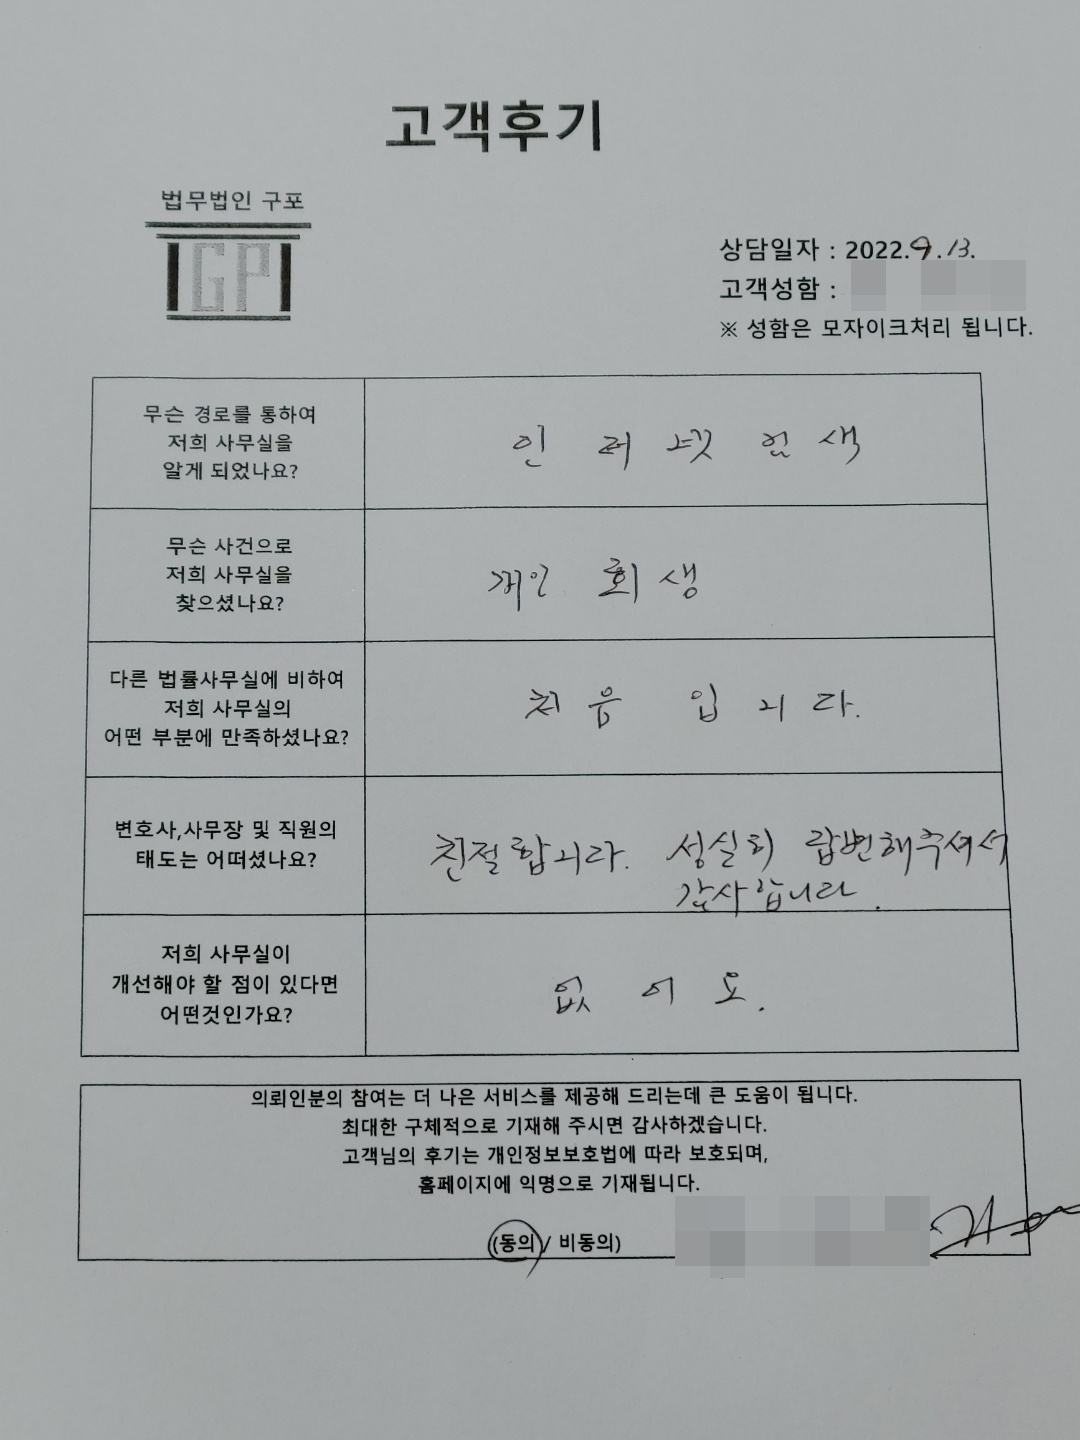 고객후기
법무법인 구포
IGPI
상담일자 : 2022.9.13.
고객성함 :
※ 성함은 모자이크처리 됩니다.
무슨 경로를 통하여
저희 사무실을
알게 되었나요?
인터넷 검색
무슨 사건으로
저희 사무실을
찾으셨나요?
개인 회생
다른 법률사무실에 비하여
저희 사무실의
어떤 부분에 만족하셨나요?
처음 입니다.
변호사,사무장 및 직원의
태도는 어떠셨나요?
친절합니다. 성실히 답변해주셔서
감사합니다.
저희 사무실이
개선해야 할 점이 있다면
어떤것인가요?
없어요.
의뢰인분의 참여는 더 나은 서비스를 제공해 드리는데 큰 도움이 됩니다.
최대한 구체적으로 기재해 주시면 감사하겠습니다.
고객님의 후기는 개인정보보호법에 따라 보호되며,
홈페이지에 익명으로 기재됩니다.
(동의 / 비동의)